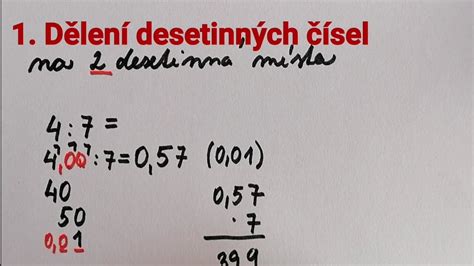 1. Dělení desetinných čísel
na 2 desetinná místa
4 : 7 =
4,00 : 7 = 0,57 (0,01)
40
50
0,01
0,57
· 7
399